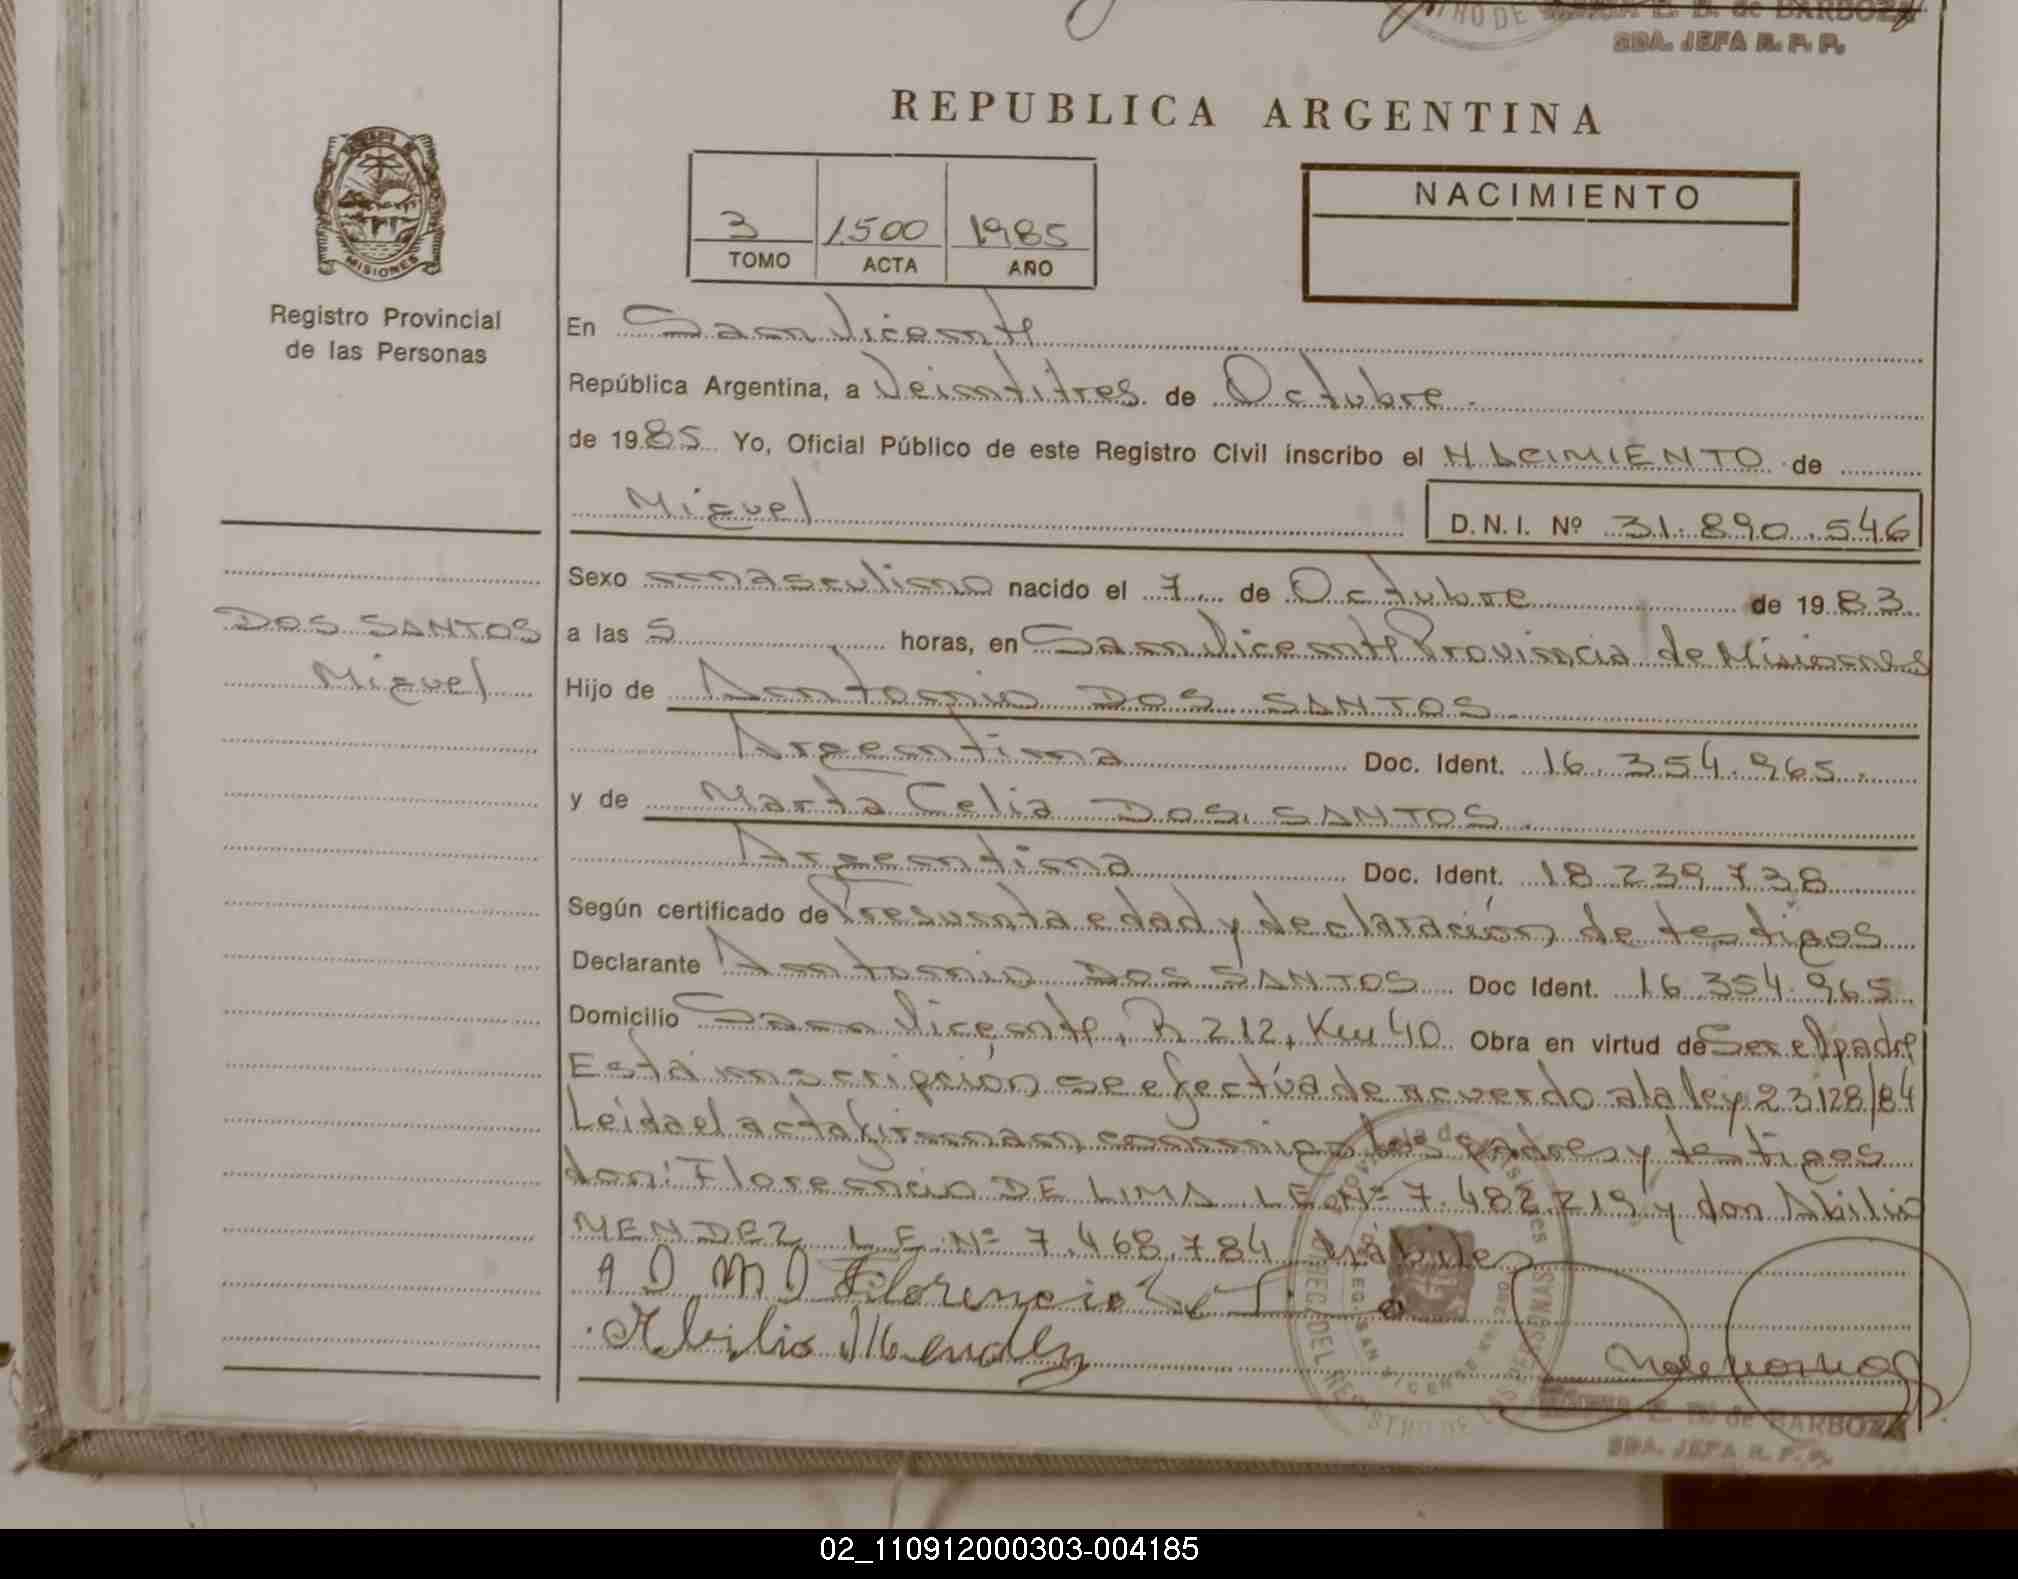 DE BARBOZA
SDA. JEFA R. P. P.
REPUBLICA ARGENTINA
MISIONES
Registro Provincial
de las Personas
3 1500 1985
TOMO ACTA AÑO
NACIMIENTO
En San Vicente
República Argentina, a Veintitres de Octubre
de 1985 Yo, Oficial Público de este Registro Civil inscribo el NACIMIENTO de
Miguel D.N.I. Nº 31.890.546
Sexo masculino nacido el 7 de Octubre de 1983
DOS SANTOS
Miguel
a las 5 horas, en San Vicente Provincia de Misiones
Hijo de Antonio DOS SANTOS
Argentina Doc. Ident. 16.354.965
y de Marta Celia DOS SANTOS
Argentina Doc. Ident. 18.239.738
Según certificado de Presunta edad y declaración de testigos
Declarante Antonio DOS SANTOS Doc Ident. 16.354.965
Domicilio San Vicente, R 212, Km 40 Obra en virtud de Ser el padre
Esta inscripción se efectúa de acuerdo a la ley 23128/84
Leída el acta firman conmigo los padres y testigos
don: Florencio DE LIMA L.E. Nº 7.482.219 y don Abilio
MENDEZ L.E. Nº 7.468.784 hábiles
A D M D Florencio
Abilio Mendez
E. B. de BARBOZA
SDA. JEFA R. P. P.
02_110912000303-004185